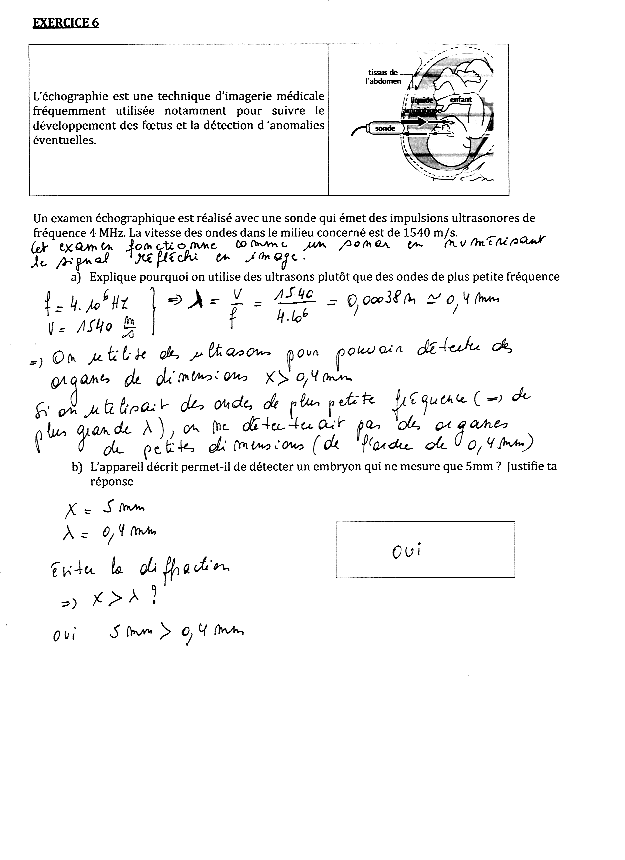 EXERCICE 6
tissus de
l'abdomen
liquide
enfant
sonde
L'échographie est une technique d'imagerie médicale
fréquemment utilisée notamment pour suivre le
développement des fœtus et la détection d 'anomalies
éventuelles.
Un examen échographique est réalisé avec une sonde qui émet des impulsions ultrasonores de
fréquence 4 MHz. La vitesse des ondes dans le milieu concerné est de 1540 m/s.
Cet examen fonctionne comme un sonar en numérisant
le signal réfléchi en image.
a) Explique pourquoi on utilise des ultrasons plutôt que des ondes de plus petite fréquence
f = 4.10⁶ Hz
v = 1540 m/s
⇒ λ = v/f = 1540/4.10⁶ = 0,00038 m ≃ 0,4 mm
⇒ On utilise des ultrasons pour pouvoir détecter des
organes de dimensions x > 0,4 mm
Si on utilisait des ondes de plus petite fréquence (⇒ de
plus grande λ), on ne détecterait pas des organes
de petites dimensions (de l'ordre de 0,4 mm)
b) L'appareil décrit permet-il de détecter un embryon qui ne mesure que 5mm ? Justifie ta
réponse
x = 5 mm
λ = 0,4 mm
oui
Éviter la diffraction
⇒ x > λ ?
oui 5 mm > 0,4 mm